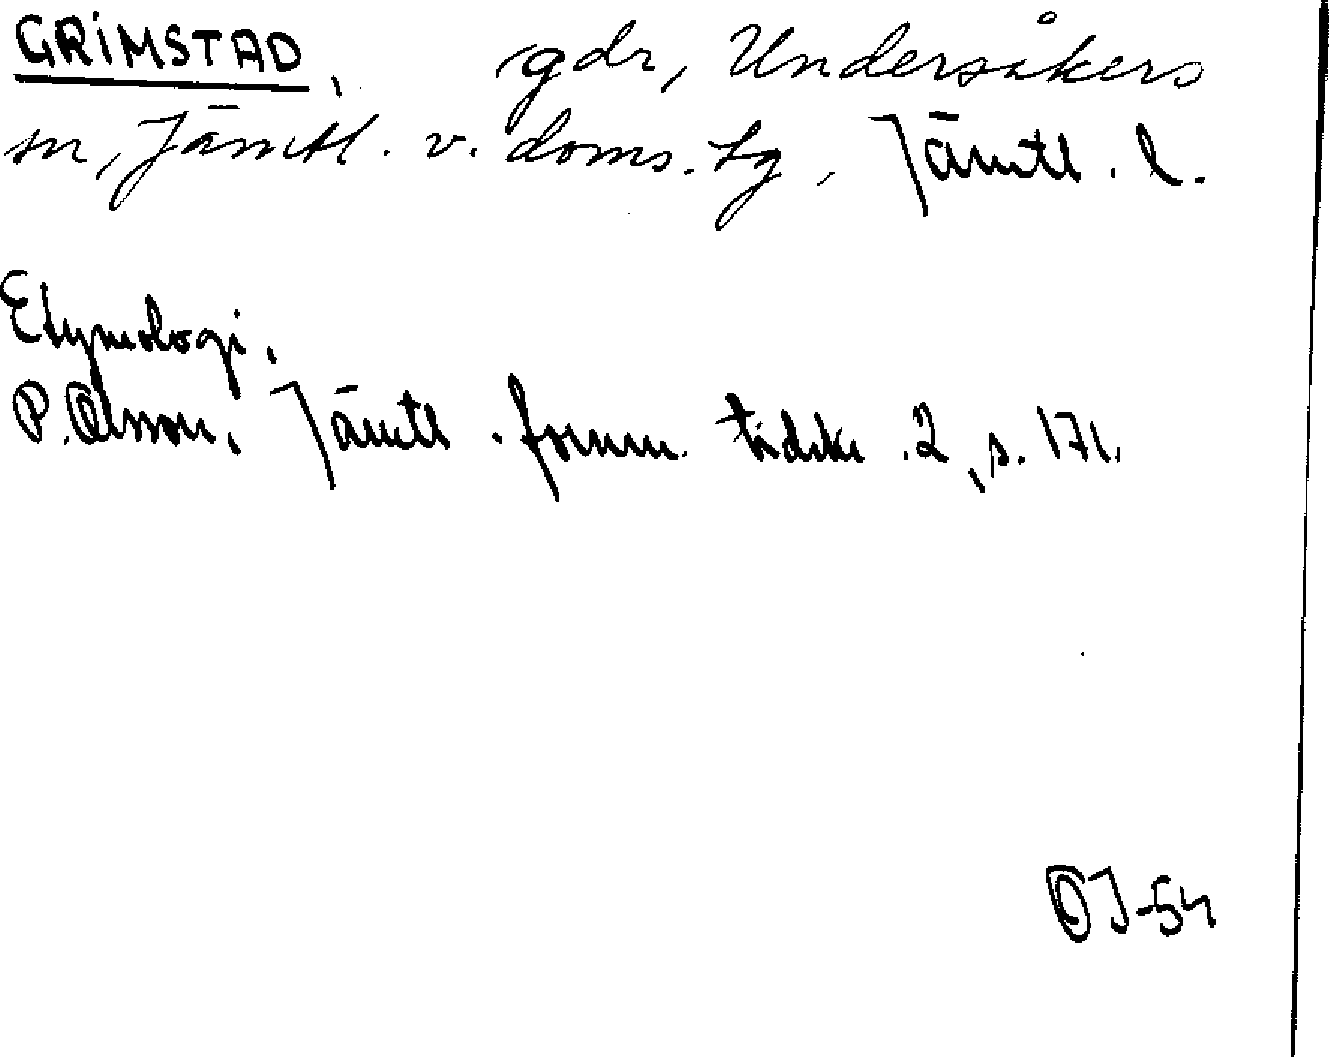 GRIMSTAD, gdr, Undersåkers
sn, Jämtl. v. doms. tg, Jämtl. l.
Etymologi.
P. Olsson, Jämtl. fornm. tidskr. 2, s. 171.
OJ-54